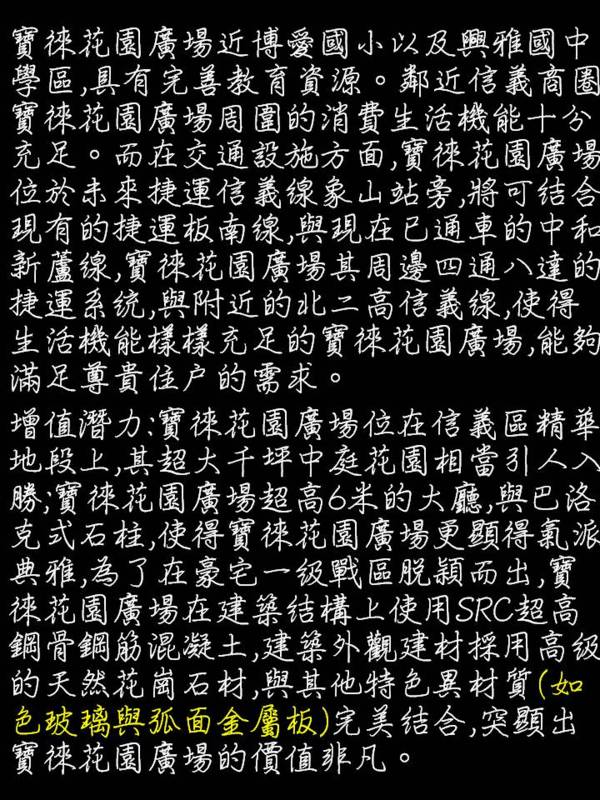 寶徠花園廣場近博愛國小以及興雅國中
學區,具有完善教育資源。鄰近信義商圈
寶徠花園廣場周圍的消費生活機能十分
充足。而在交通設施方面,寶徠花園廣場
位於未來捷運信義線象山站旁,將可結合
現有的捷運板南線,與現在已通車的中和
新蘆線,寶徠花園廣場其周邊四通八達的
捷運系統,與附近的北二高信義線,使得
生活機能樣樣充足的寶徠花園廣場,能夠
滿足尊貴住戶的需求。
增值潛力:寶徠花園廣場位在信義區精華
地段上,其超大千坪中庭花園相當引人入
勝;寶徠花園廣場超高6米的大廳,與巴洛
克式石柱,使得寶徠花園廣場更顯得氣派
典雅,為了在豪宅一級戰區脫穎而出,寶
徠花園廣場在建築結構上使用SRC超高
鋼骨鋼筋混凝土,建築外觀建材採用高級
的天然花崗石材,與其他特色異材質(如
色玻璃與弧面金屬板)完美結合,突顯出
寶徠花園廣場的價值非凡。